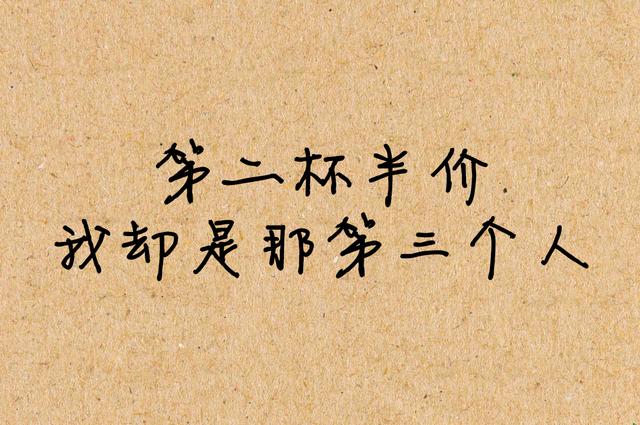 第二杯半价
我却是那第三个人